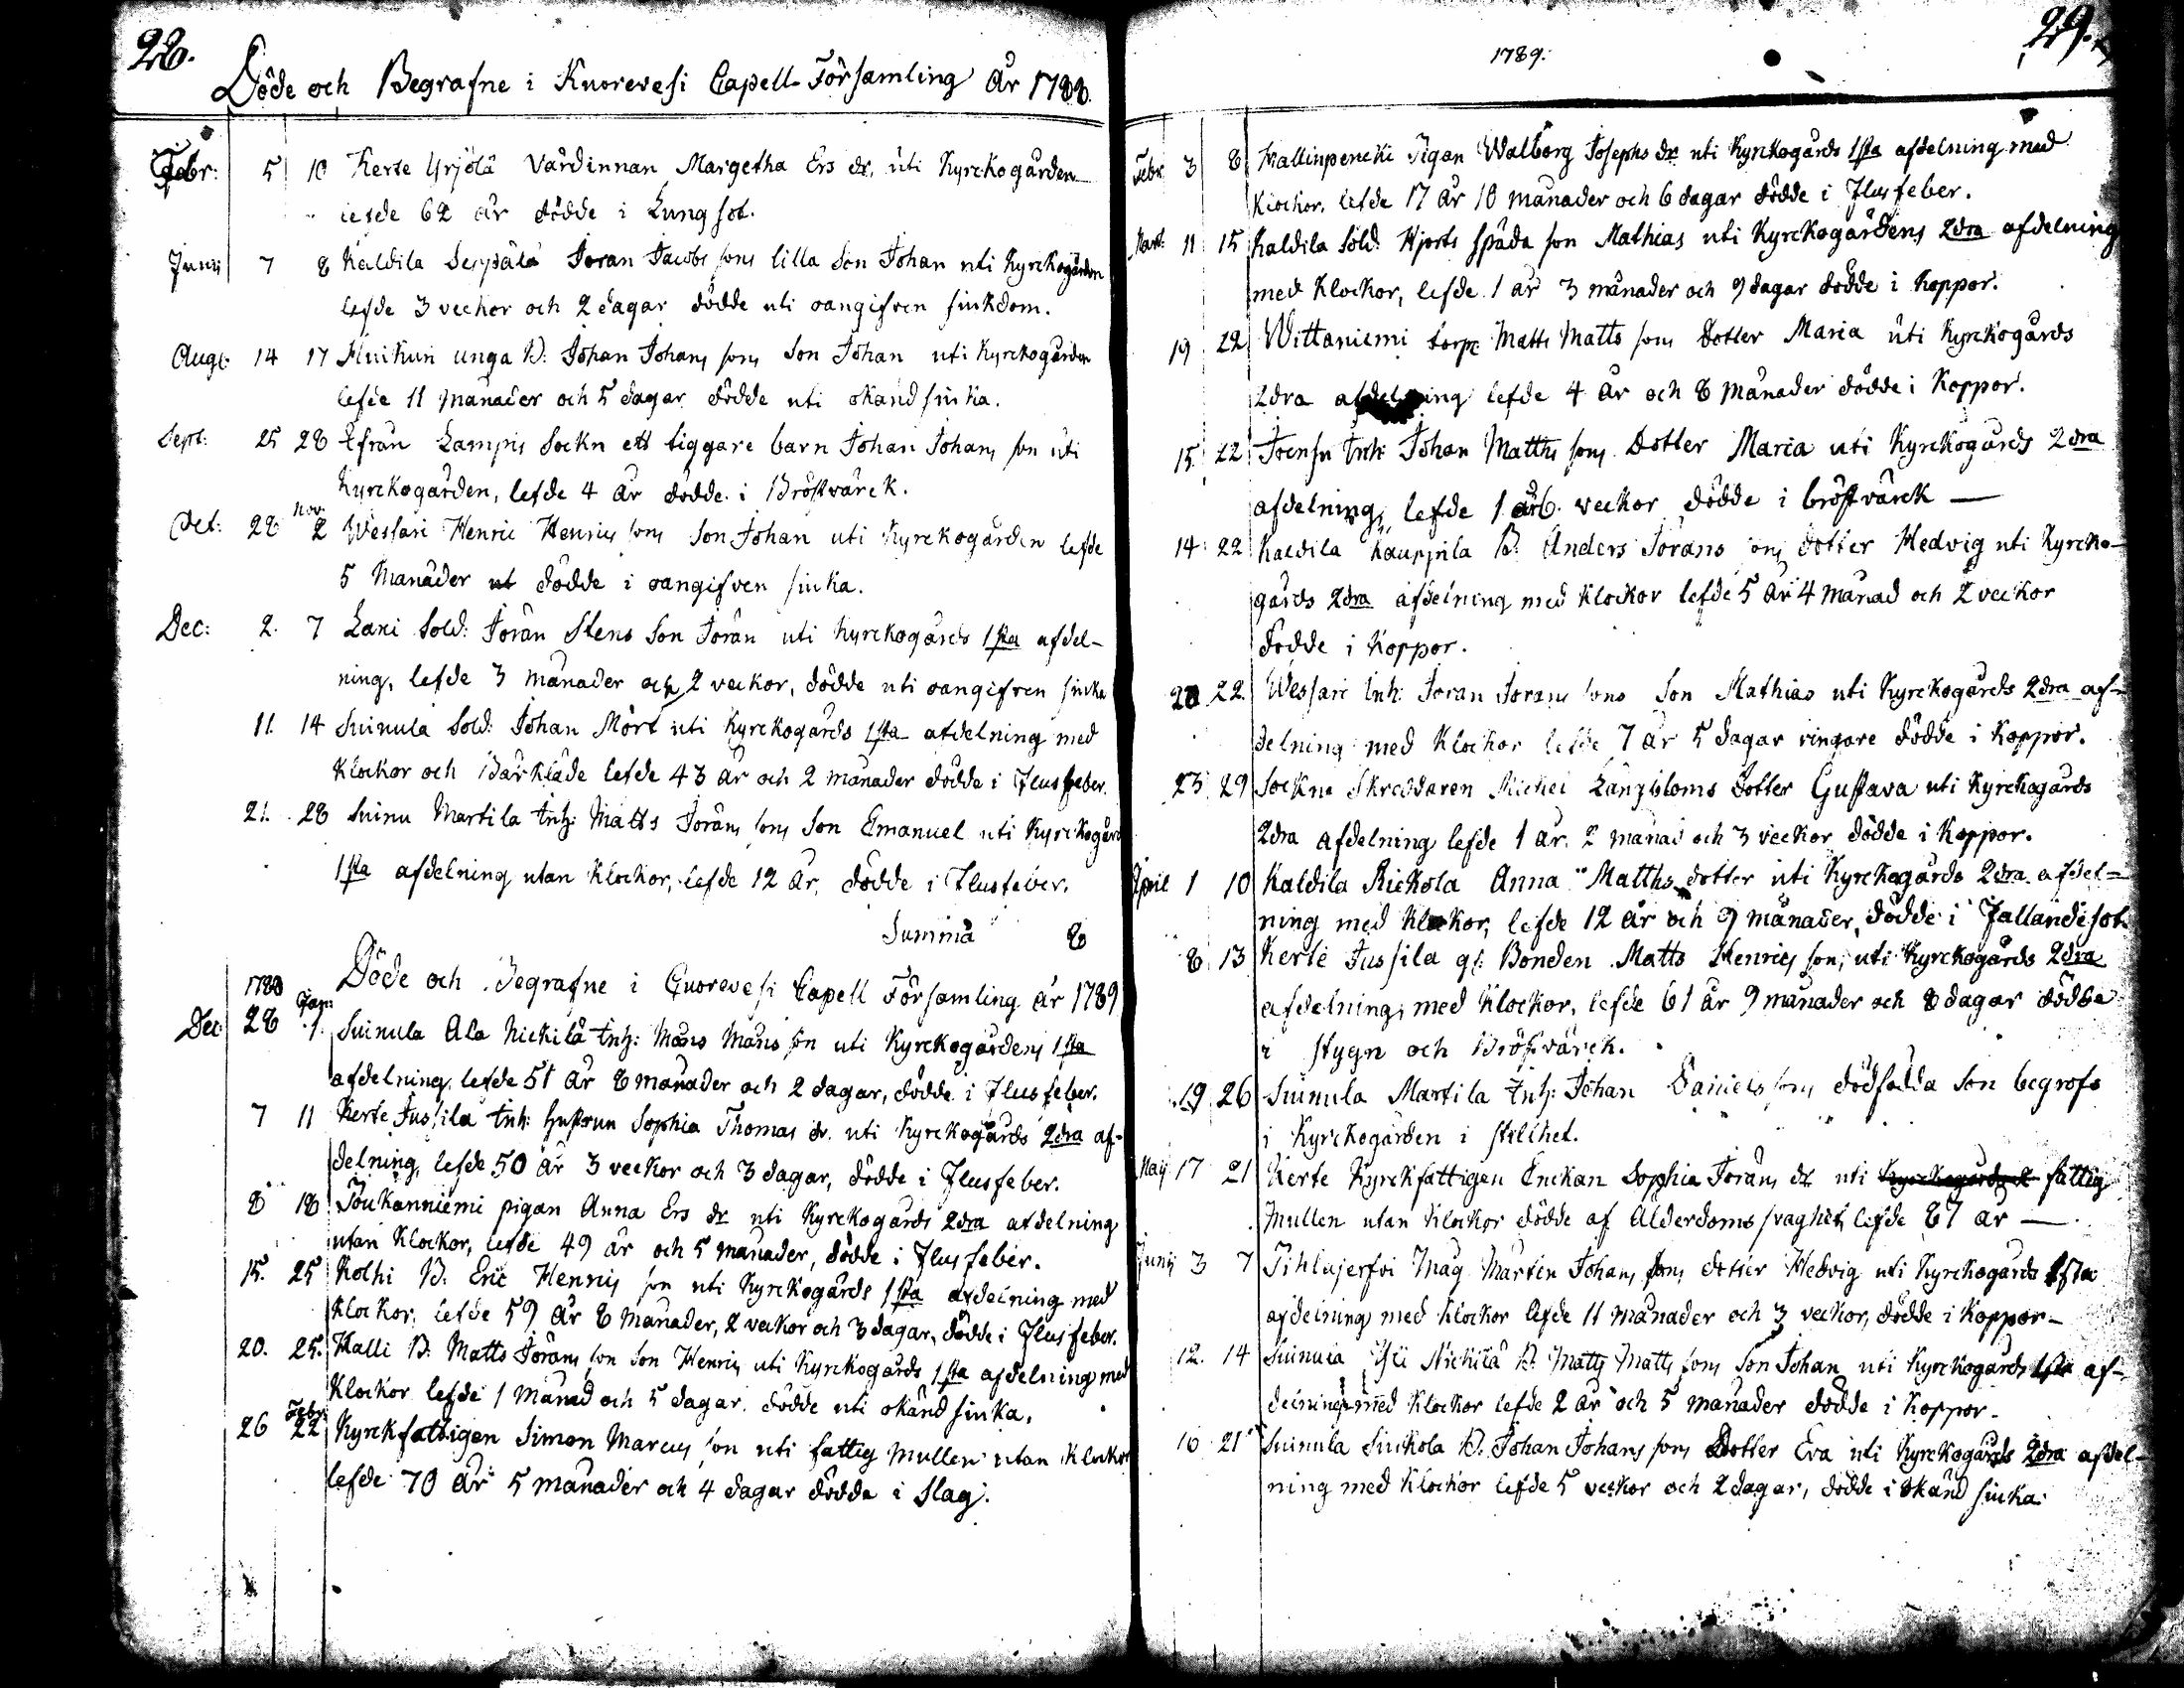 28.
Döde och Begrafne i Kuorevesi Capell-Församling År 1788.
Febr: 5 10 Kerte Yrjölä Värdinnan Margetha Ers dr, uti Kyrckogården
lefde 62 år dödde i Lungsot.
Junii 7 8 Kaldila Seppälä Joran Jacobs sons lilla Son Johan uti Kyrckogården
lefde 3 veckor och 2 dagar dödde uti oangifven siukdom.
Aug: 14 17 Huikuri unga B: Johan Johans sons Son Johan uti Kyrckogården
lefde 11 månader och 5 dagar dödde uti okänd siuka.
Sept: 25 28 Ifrån Lampis Sockn ett tiggare barn Johan Johans son uti
Kyrckogården, lefde 4 år dödde i Bröstvärck.
Oct: 28 Nov. 2 Wessari Henric Henrics sons Son Johan uti Kyrckogården lefde
5 Månader ut dödde i oangifven siuka.
Dec: 2. 7 Lari Sold: Jöran Stens Son Jöran uti Kyrckogårds 1sta afdel-
ning, lefde 3 månader och 2 veckor, dödde uti oangifven siuka
11. 14 Suinula Sold: Johan Mört uti Kyrckogårds 1sta afdelning med
Klockor och Bårkläde lefde 43 år och 2 månader dödde i Flusfeber.
21. 28 Suinu Martila Inh: Matts Jörans sons Son Emanuel uti Kyrckogård
1sta afdelning utan Klockor, lefde 12 år, dödde i Flusfeber.
Summa 8
Döde och Begrafne i Quorevesi Capell Församling år 1789
1788
Dec 28 Jan: 1. Suinula Ala Nickilä Inh: Måns Måns son uti Kyrckogårdens 1sta
afdelning, lefde 51 år 8 månader och 2 dagar, dödde i Flusfeber.
7 11 Kerte Jussila Inh: hustrun Sophia Thomas dr. uti Kyrckogårds 2dra af-
delning, lefde 50 år 3 veckor och 3 dagar, dödde i Flusfeber.
8 18 Joukanniemi pigan Anna Ers dr uti Kyrckogårds 2dra afdelning
utan Klockor, lefde 49 år och 5 månader, dödde i Flusfeber.
15. 25 Kolhi B: Eric Henrics son uti Kyrckogårds 1sta afdelning med
Klockor, lefde 59 år 8 månader, 2 veckor och 3 dagar, dödde i Flusfeber.
20. 25. Halli B: Matts Jörans son Son Henric uti Kyrckogårds 1sta afdelning med
Klockor lefde 1 månad och 5 dagar dödde uti okänd siuka.
26 Febr 22 Kyrckfattigen Simon Marcus son uti fattig mullen utan Klockor
lefde 70 år 5 månader och 4 dagar dödde i Slag.
29.
1789.
Febr 3 8 Hallinpencki Pigan Walborg Josephs dr uti Kyrckogårds 1sta afdelning med
Klockor, lefde 17 år 10 månader och 6 dagar dödde i Flusfeber.
Mart: 11 15 Kaldila Sold. Hjorts späda son Mathias uti Kyrckogårdens 2dra afdelning
med Klockor, lefde 1 år 3 månader och 9 dagar dödde i Koppor.
19 22 Wittaniemi torp: Matts Matts sons Dotter Maria uti Kyrckogårds
2dra afdelning lefde 4 år och 8 Månader dödde i Koppor.
15 22 Joensu Inh: Johan Matths sons Dotter Maria uti Kyrckogårds 2dra
afdelning, lefde 1 år 6. veckor dödde i bröstvärck —
14 22 Kaldila Kauppila B. Anders Jörans sons dotter Hedvig uti Kyrcko-
gårds 2dra afdelning med Klockor lefde 5 år 4 Månad och 2 veckor
dödde i Koppor.
20 22 Wessari Inh: Joran Jorans sons Son Mathias uti Kyrckogårds 2dra af-
delning med Klockor lefde 7 år 5 dagar ringare dödde i Koppor.
23 29 Sockne Skreddaren Michel Långbloms Dotter Gustava uti Kyrckogårds
2dra afdelning lefde 1 år. 2 månad och 3 veckor dödde i Koppor.
April 1 10 Kaldila Rickola Anna Matths dotter uti Kyrckogårds 2dra afdel-
ning med Klockor, lefde 12 år och 9 månader, dödde i Fallandesot.
8 13 Kerte Jussila gl: Bonden Matts Henrics son, uti Kyrckogårds 2dra
afdelning, med Klockor, lefde 61 år 9 månader och 8 dagar dödde
i stygn och Bröstvärck.
19 26 Suinula Martila Inh: Johan Daniels sons dödfödda Son begrofs
i Kyrckogården i stillhet.
Maij 17 21 Kerte Kyrckfattigen Enckan Sophia Jörans dr uti Kyrckogårds 2 fattig
Mullen utan Klockor dödde af Ålderdoms svaghet, lefde 87 år —
Junii 3 7 Pihlajerfvi Måg Martin Johans sons dotter Hedvig uti Kyrckogårds 1sta
afdelning med Klockor lefde 11 Månader och 3 veckor, dödde i Koppor-
12. 14 Suinula Yli Nickilä B. Matts Matts sons Son Johan uti Kyrckogårds 1sta af-
delning med Klockor lefde 2 år och 5 månader dödde i Koppor-
16 21 Suinula Siukola B. Johan Johans sons Dotter Eva uti Kyrckogårds 2dra afdel-
ning med Klockor lefde 5 veckor och 2 dagar, dödde i okänd siuka.